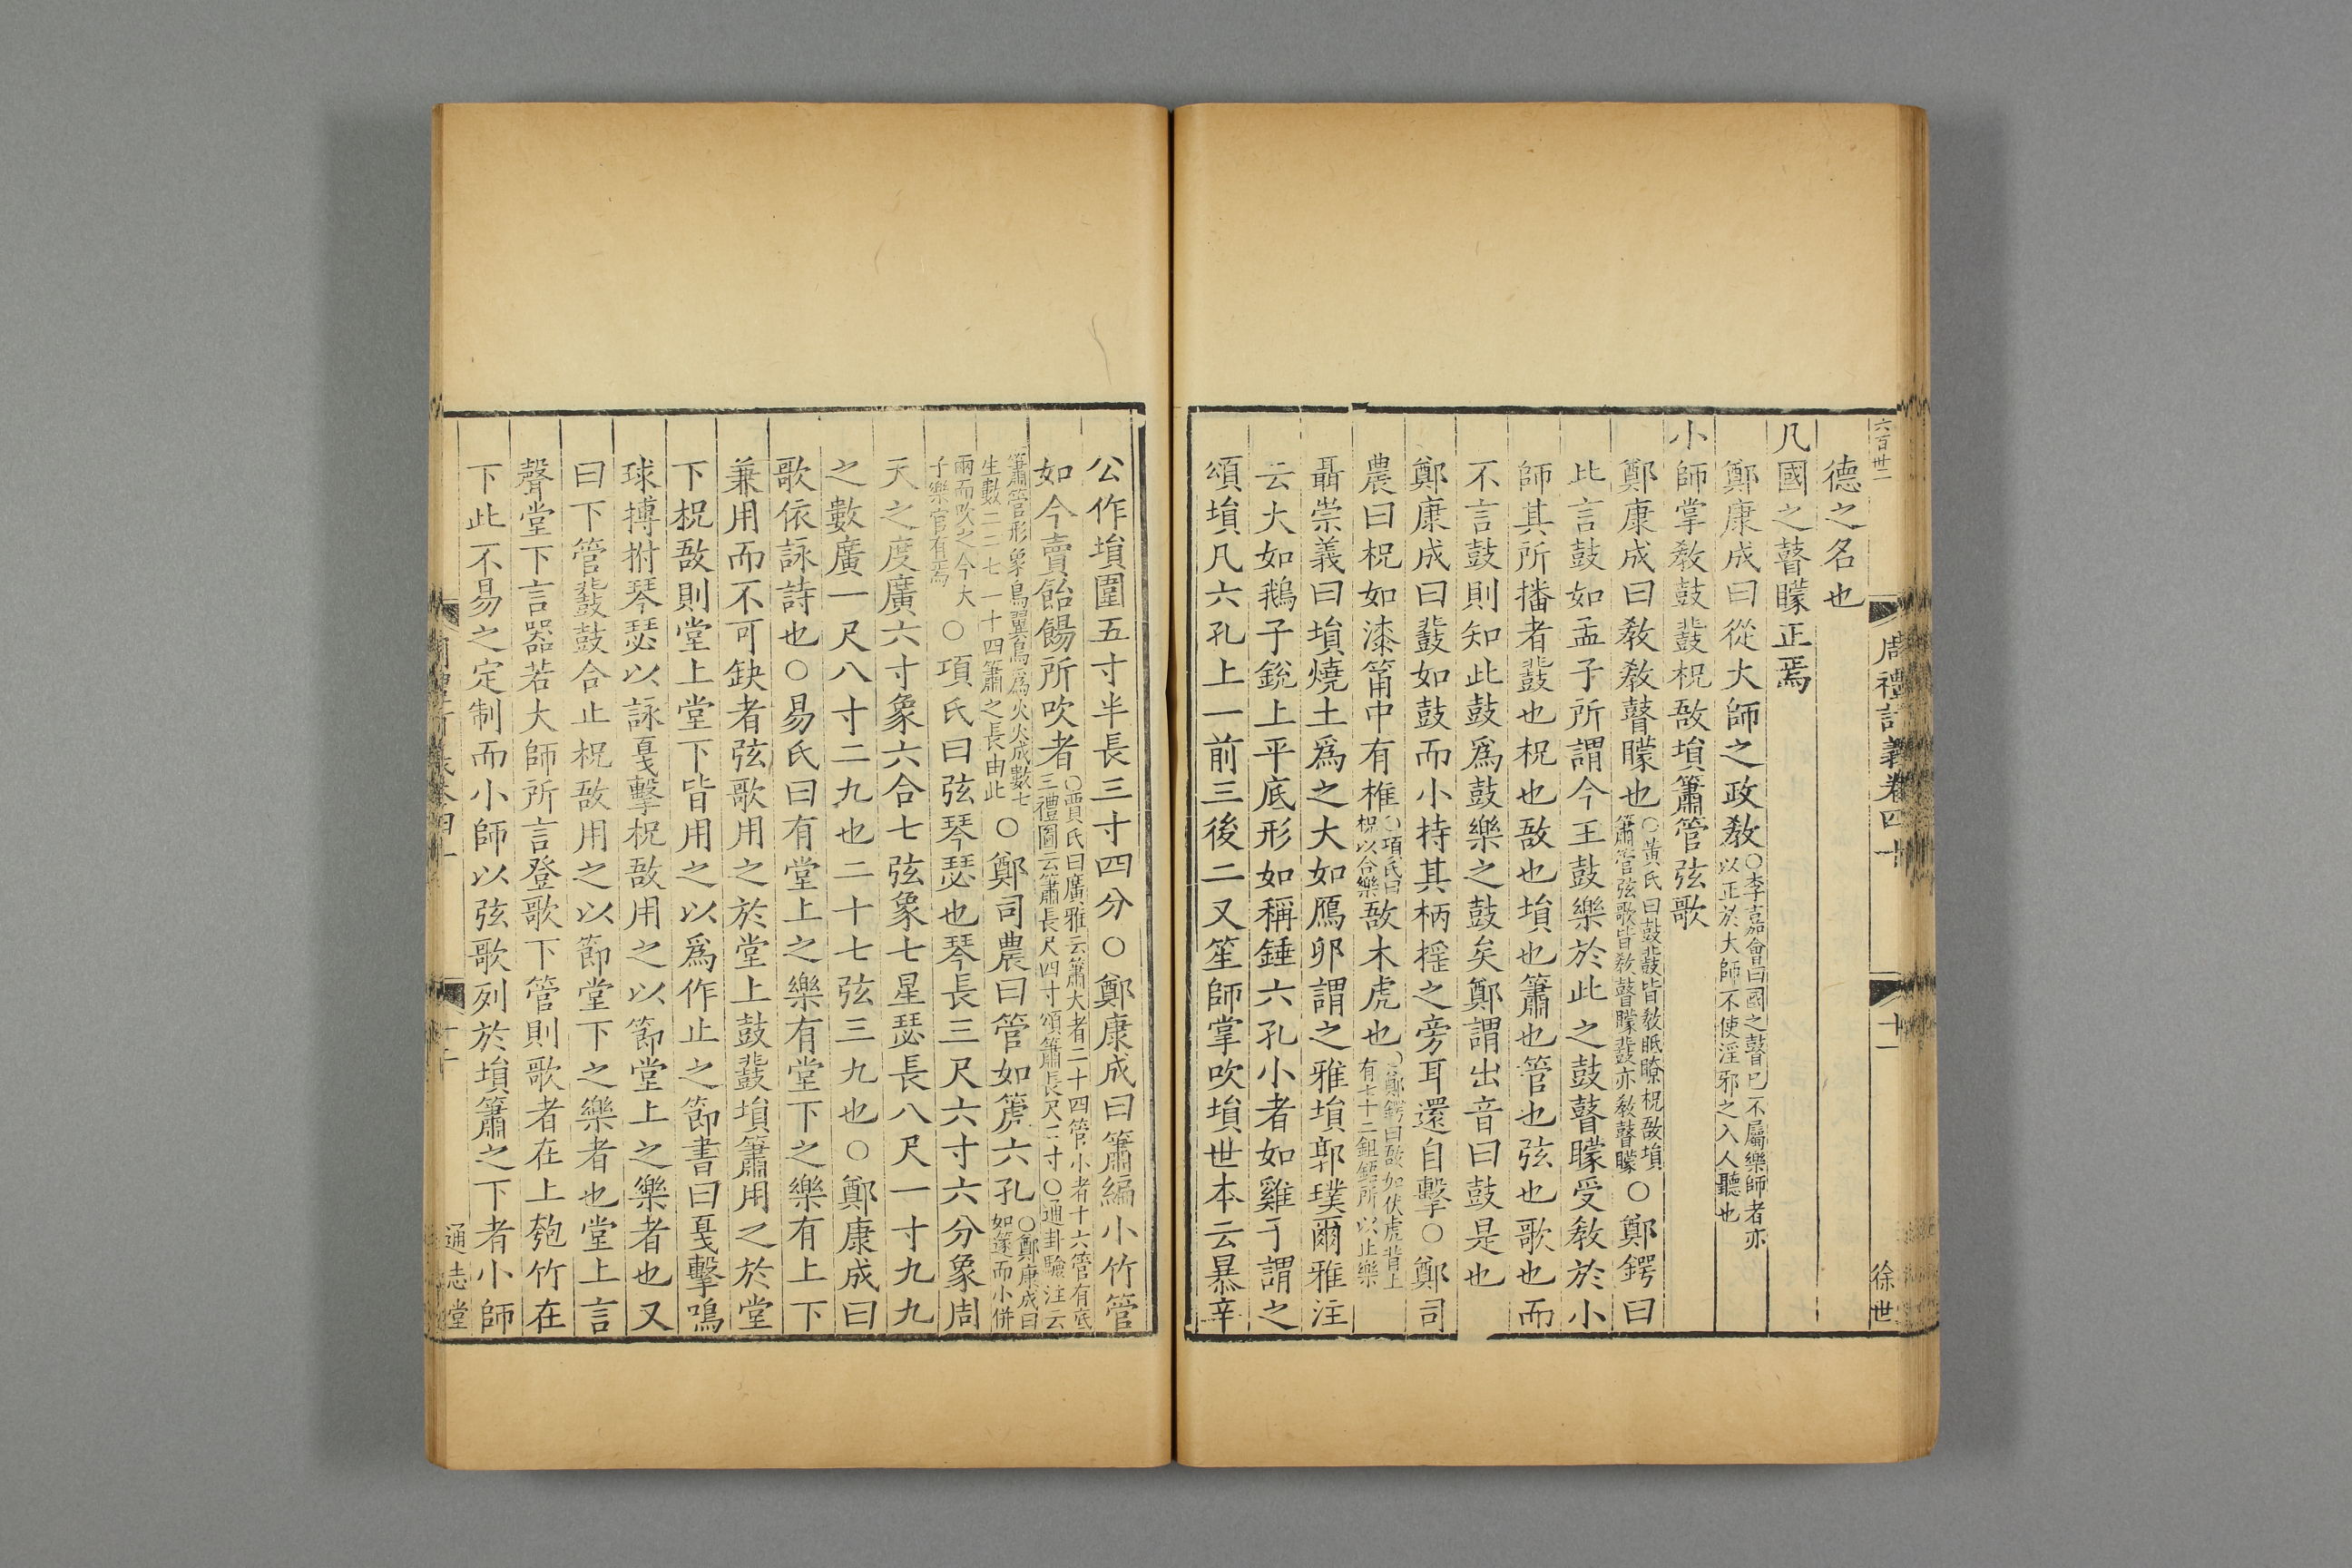 六百卅二
周禮訂義卷四十
十一
徐世
德之名也
凡國之瞽矇正焉
鄭康成曰從大師之政教○李嘉會曰國之瞽巳不屬樂師者亦以正於大師不使淫邪之入人聽也
小師掌教鼓鼗柷敔塤簫管弦歌
鄭康成曰教教瞽矇也○黃氏曰鼓鼗皆教眡瞭柷敔塤簫管弦歌皆教瞽矇鼗亦教瞽矇○鄭鍔曰
此言鼓如孟子所謂今王鼓樂於此之鼓瞽矇受教於小
師其所播者鼗也柷也敔也塤也簫也管也弦也歌也而
不言鼓則知此鼓爲鼓樂之鼓矣鄭謂出音曰鼓是也
鄭康成曰鼗如鼓而小持其柄搖之旁耳還自擊○鄭司
農曰柷如漆筩中有椎○項氏曰柷以合樂敔木虎也○鄭鍔曰敔如伏虎背上有七十二鉏鋙所以止樂
聶崇義曰塤燒土爲之大如鴈卵謂之雅塤郭璞爾雅注
云大如鵝子銳上平底形如稱錘六孔小者如雞子謂之
頌塤凡六孔上一前三後二又笙師掌吹塤世本云暴辛
公作塤圍五寸半長三寸四分○鄭康成曰簫編小竹管
如今賣飴餳所吹者○賈氏曰廣雅云簫大者二十四管小者十六管有底三禮圖云簫長尺四寸頌簫長尺二寸○通卦驗注云
簫管形象鳥翼鳥爲火火成數七生數二二七一十四簫之長由此○鄭司農曰管如篪六孔○鄭康成曰如篴而小併
兩而吹之今大子樂官有焉○項氏曰弦琴瑟也琴長三尺六寸六分象周
天之度廣六寸象六合七弦象七星瑟長八尺一寸九九
之數廣一尺八寸二九也二十七弦三九也○鄭康成曰
歌依詠詩也○易氏曰有堂上之樂有堂下之樂有上下
兼用而不可缺者弦歌用之於堂上鼓鼗塤簫用之於堂
下柷敔則堂上堂下皆用之以爲作止之節書曰戛擊鳴
球搏拊琴瑟以詠戛擊柷敔用之以節堂上之樂者也又
曰下管鼗鼓合止柷敔用之以節堂下之樂者也堂上言
聲堂下言器若大師所言登歌下管則歌者在上匏竹在
下此不易之定制而小師以弦歌列於塤簫之下者小師
通志堂